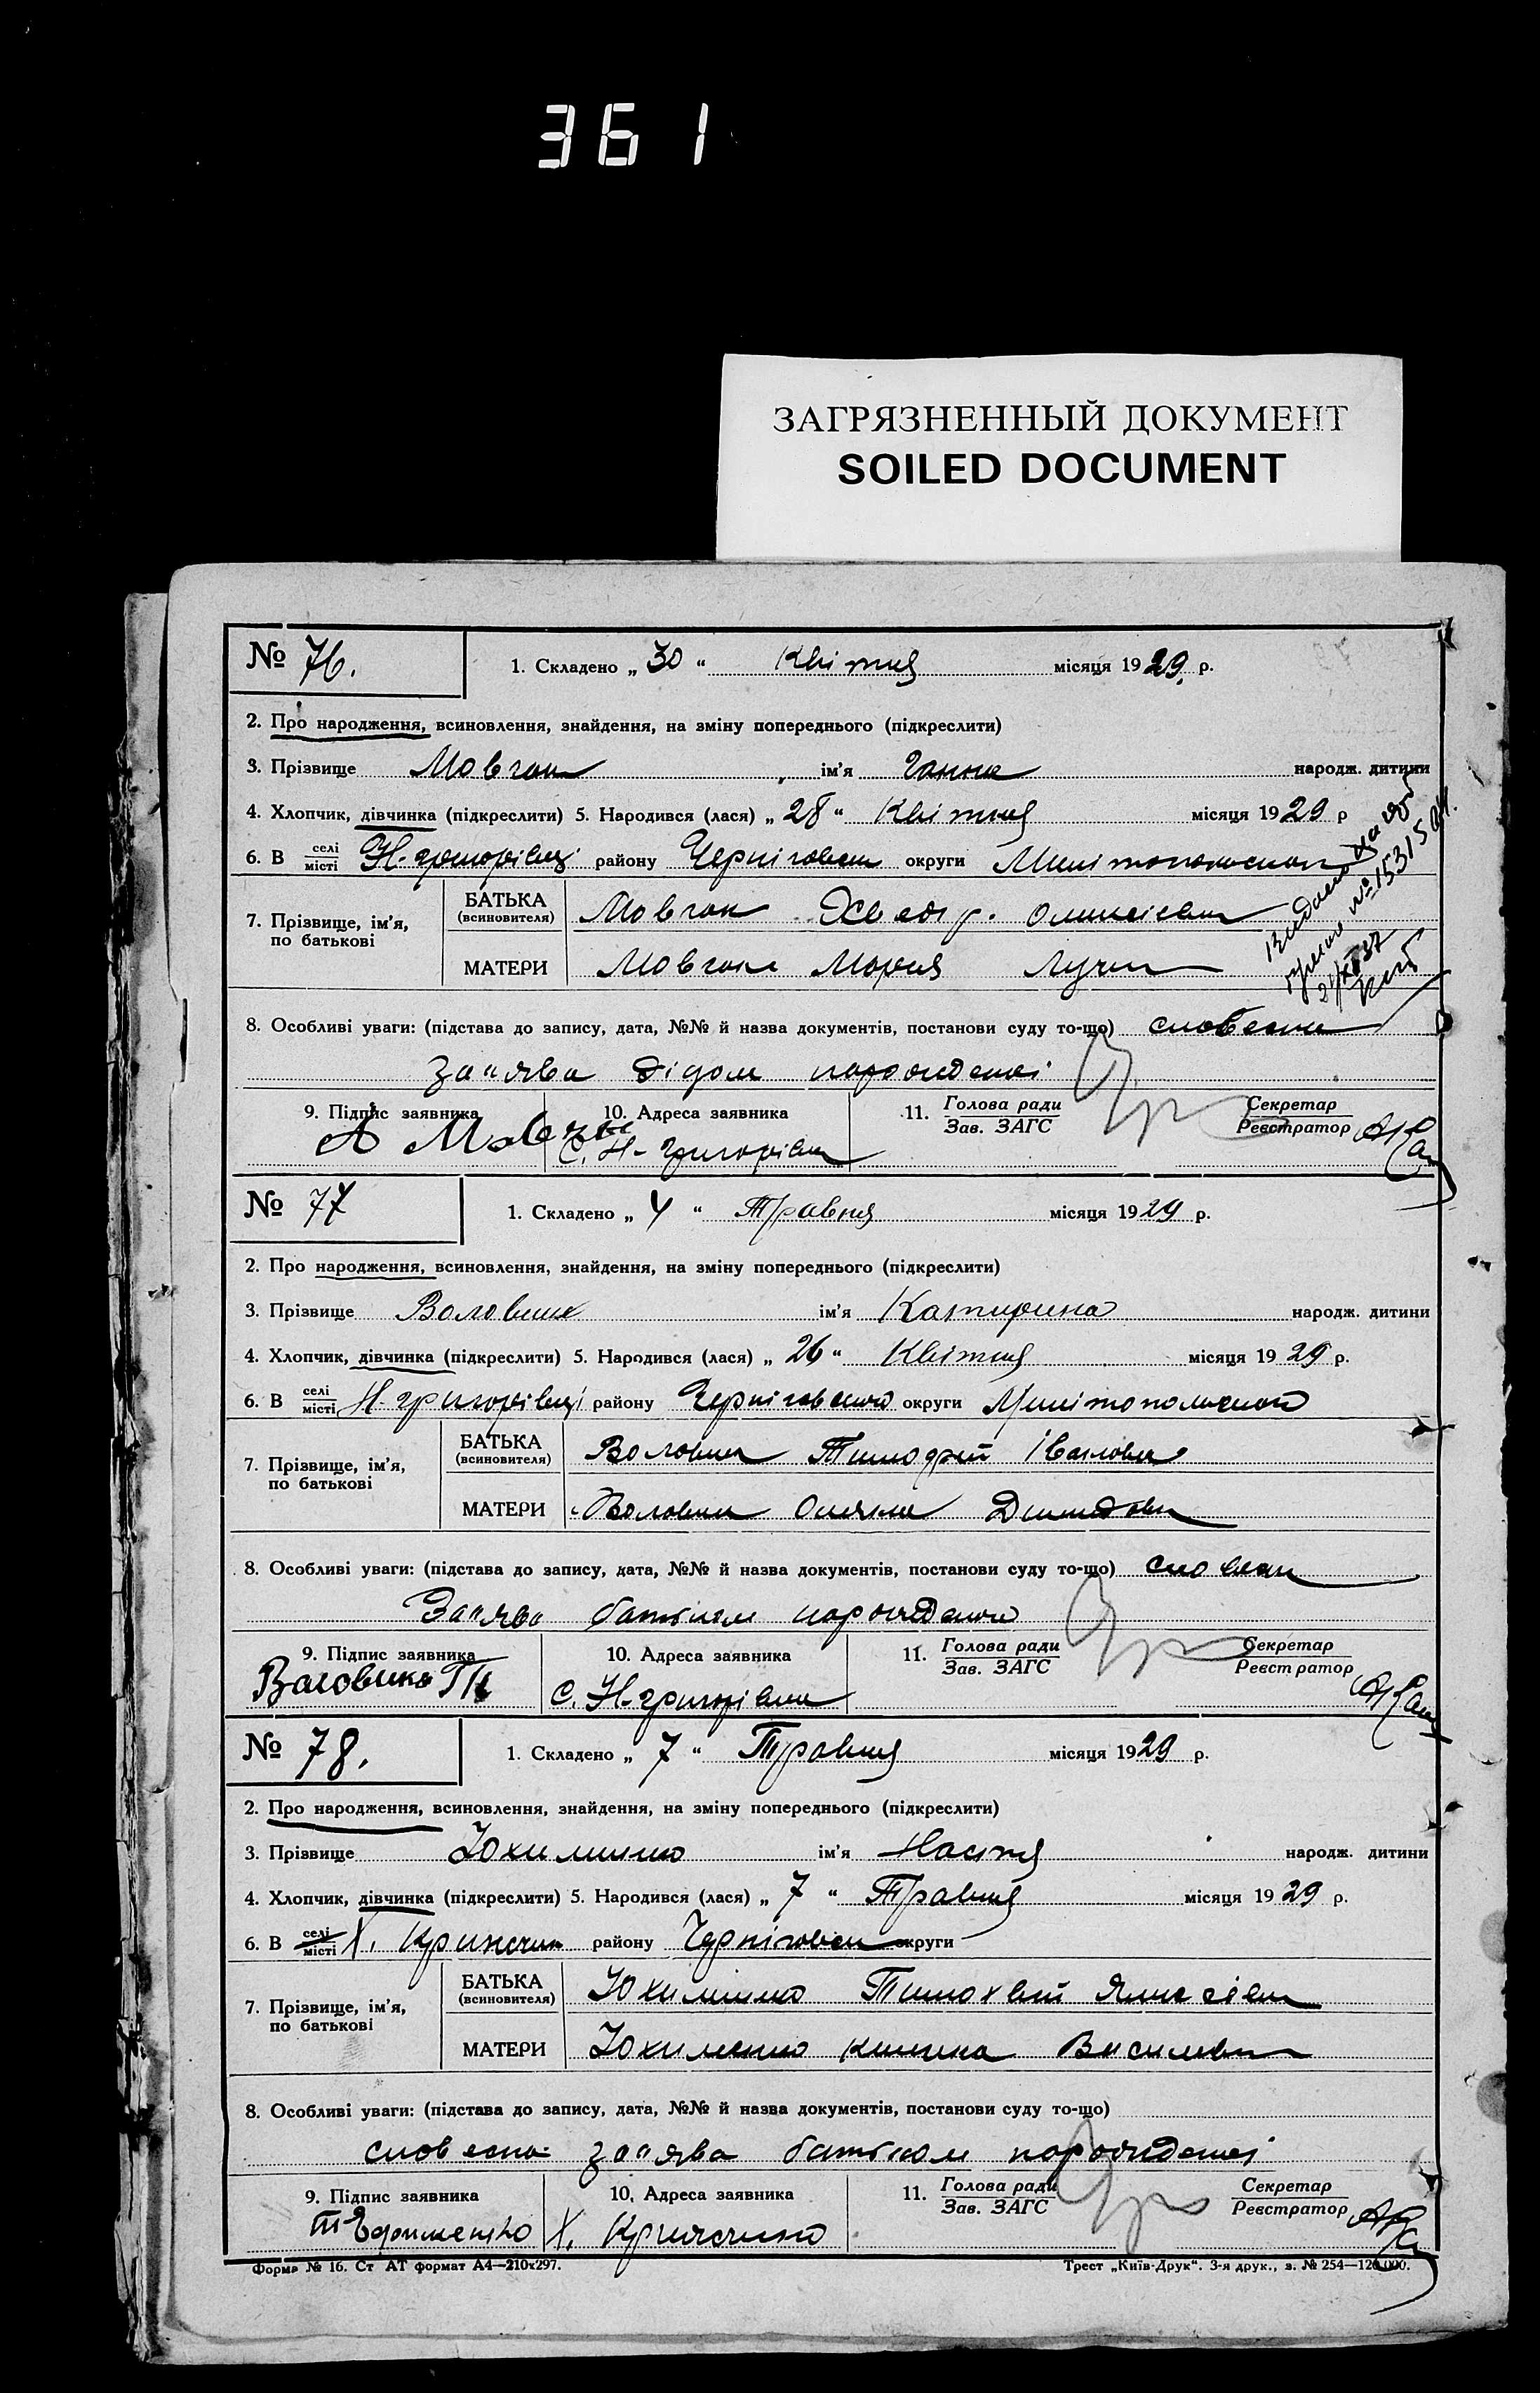 361
ЗАГРЯЗНЕННЫЙ ДОКУМЕНТ
SOILED DOCUMENT
№ 76. 1. Складено „ 30 “ Квітня місяця 1929. р.
2. Про народження, всиновлення, знайдення, на зміну попереднього (підкреслити)
3. Прізвище Мовчан ім'я Ганна народж. дитини
4. Хлопчик, дівчинка (підкреслити) 5. Народився (лася) „ 28 “ Квітня місяця 1929 р
6. В селі місті Н-григорівці району Черніговськ округи Мелітопольської
7. Прізвище, ім'я, по батькові
БАТЬКА (всиновителя) Мовчан Хведір Олексієвич
МАТЕРИ Мовчан Мария
№ 15315
8. Особливі уваги: (підстава до запису, дата, №№ й назва документів, постанови суду то-що) словесна
заява дідом народженої
9. Підпис заявника 10. Адреса заявника 11. Голова ради Зав. ЗАГС Секретар Реєстратор
А Мовчан С. Н-григорівка
№ 77 1. Складено „ 4 “ Травня місяця 1929 р.
2. Про народження, всиновлення, знайдення, на зміну попереднього (підкреслити)
3. Прізвище Воловик ім'я Катирина народж. дитини
4. Хлопчик, дівчинка (підкреслити) 5. Народився (лася) „ 26 “ Квітня місяця 1929 р.
6. В селі місті Н-григорівці району Черніговського округи Мелітопольської
7. Прізвище, ім'я, по батькові
БАТЬКА (всиновителя) Воловик Тимофій Іванович
МАТЕРИ Воловик Демидовн
8. Особливі уваги: (підстава до запису, дата, №№ й назва документів, постанови суду то-що) словесн
Заява батьком народженої
9. Підпис заявника 10. Адреса заявника 11. Голова ради Зав. ЗАГС Секретар Реєстратор
С. Н-григорівка
№ 78. 1. Складено „ 7 “ Травня місяця 1929 р.
2. Про народження, всиновлення, знайдення, на зміну попереднього (підкреслити)
3. Прізвище Юхименко ім'я Настя народж. дитини
4. Хлопчик, дівчинка (підкреслити) 5. Народився (лася) „ 7 “ Травня місяця 1929 р.
6. В селі місті Х. району Черніговськ округи
7. Прізвище, ім'я, по батькові
БАТЬКА (всиновителя) Юхименко Тимохвій
МАТЕРИ Юхименко Килина Василевн
8. Особливі уваги: (підстава до запису, дата, №№ й назва документів, постанови суду то-що)
словесна заява батьком народженої
9. Підпис заявника 10. Адреса заявника 11. Голова ради Зав. ЗАГС Секретар Реєстратор
Т Ефименко Х.
Форма № 16. Ст АТ формат А4—210х297. Трест „Київ-Друк“. 3-я друк., з. № 254—120.000.